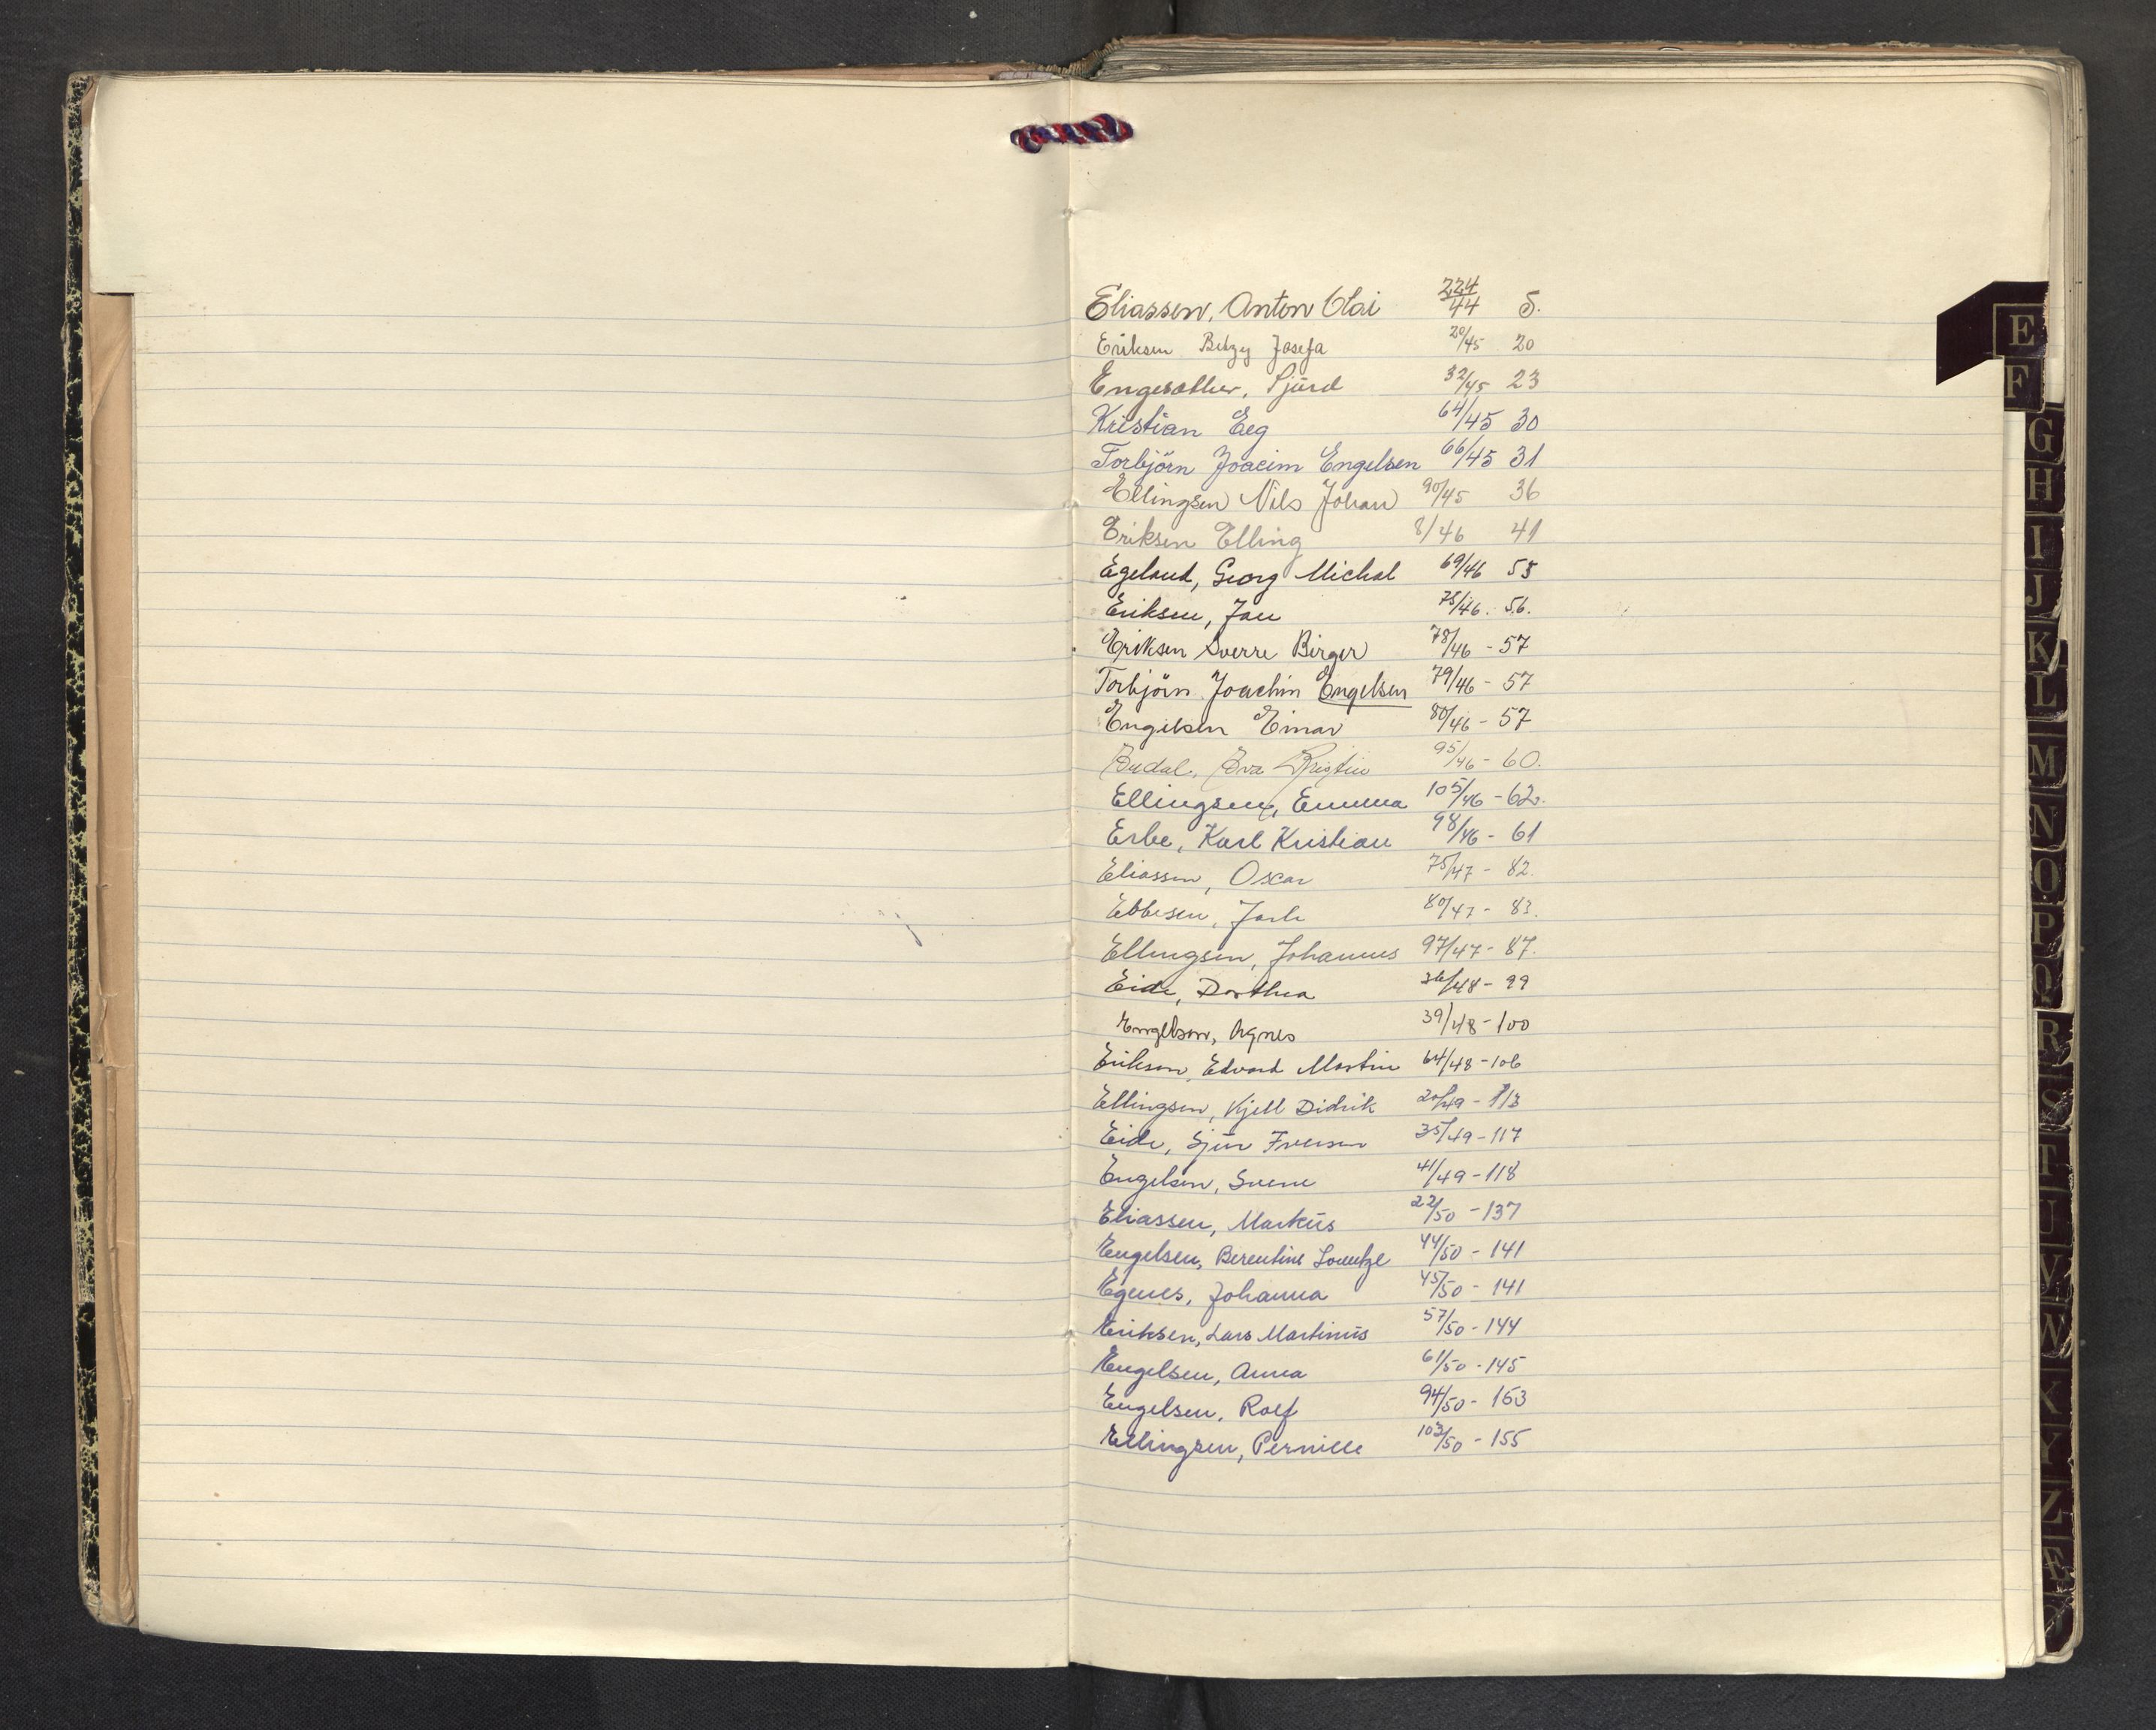 Eliassen, Anton Olai 224/44 5.
Eriksen Betzy Josefa 20/45 20
Engesæther, Sjurd 32/45 23
Kristian Eeg 64/45 30
Torbjörn Joacim Engelsen 66/45 31
Ellingsen Nils Johan 90/45 36
Eriksen Elling 8/46 41
Egeland, Georg Michal 69/46 55
Eriksen, Jan 75/46. 56.
Eriksen Sverre Birger 78/46 - 57
Torbjörn Joachim Engelsen 79/46 - 57
Engelsen Einar 80/46 - 57
Eva 95/46 - 60.
Ellingsen, Emma 105/46 - 62.
Erbe, Karl Kristian 98/46 - 61
Eliassen, Oscar 75/47 - 82.
Ebbesen, Jarle 80/47 - 83.
Ellingsen, Johannes 97/47 - 87.
Eide, Dorthea 36/48 - 99
Engelsen, Agnes 39/48 - 100
Eriksen, Edvard Martin 64/48 - 106
Ellingsen, Kjell Didrik 20/49 - 113
Eide, Sjur Iversen 35/49 - 117
Engelsen, Sverre 41/49 - 118
Eliassen, Markus 22/50 - 137
Engelsen, Berentine Lorentze 44/50 - 141
Egenes, Johanna 45/50 - 141
Eriksen, Lars Martinus 57/50 - 144
Engelsen, Anna 61/50 - 145
Engelsen, Rolf 94/50 - 153
Ellingsen, Pernille 103/50 - 155
E
F
G
H
I
J
K
L
M
N
O
P
Q
R
S
T
U
V
W
X
Y
Z
Æ